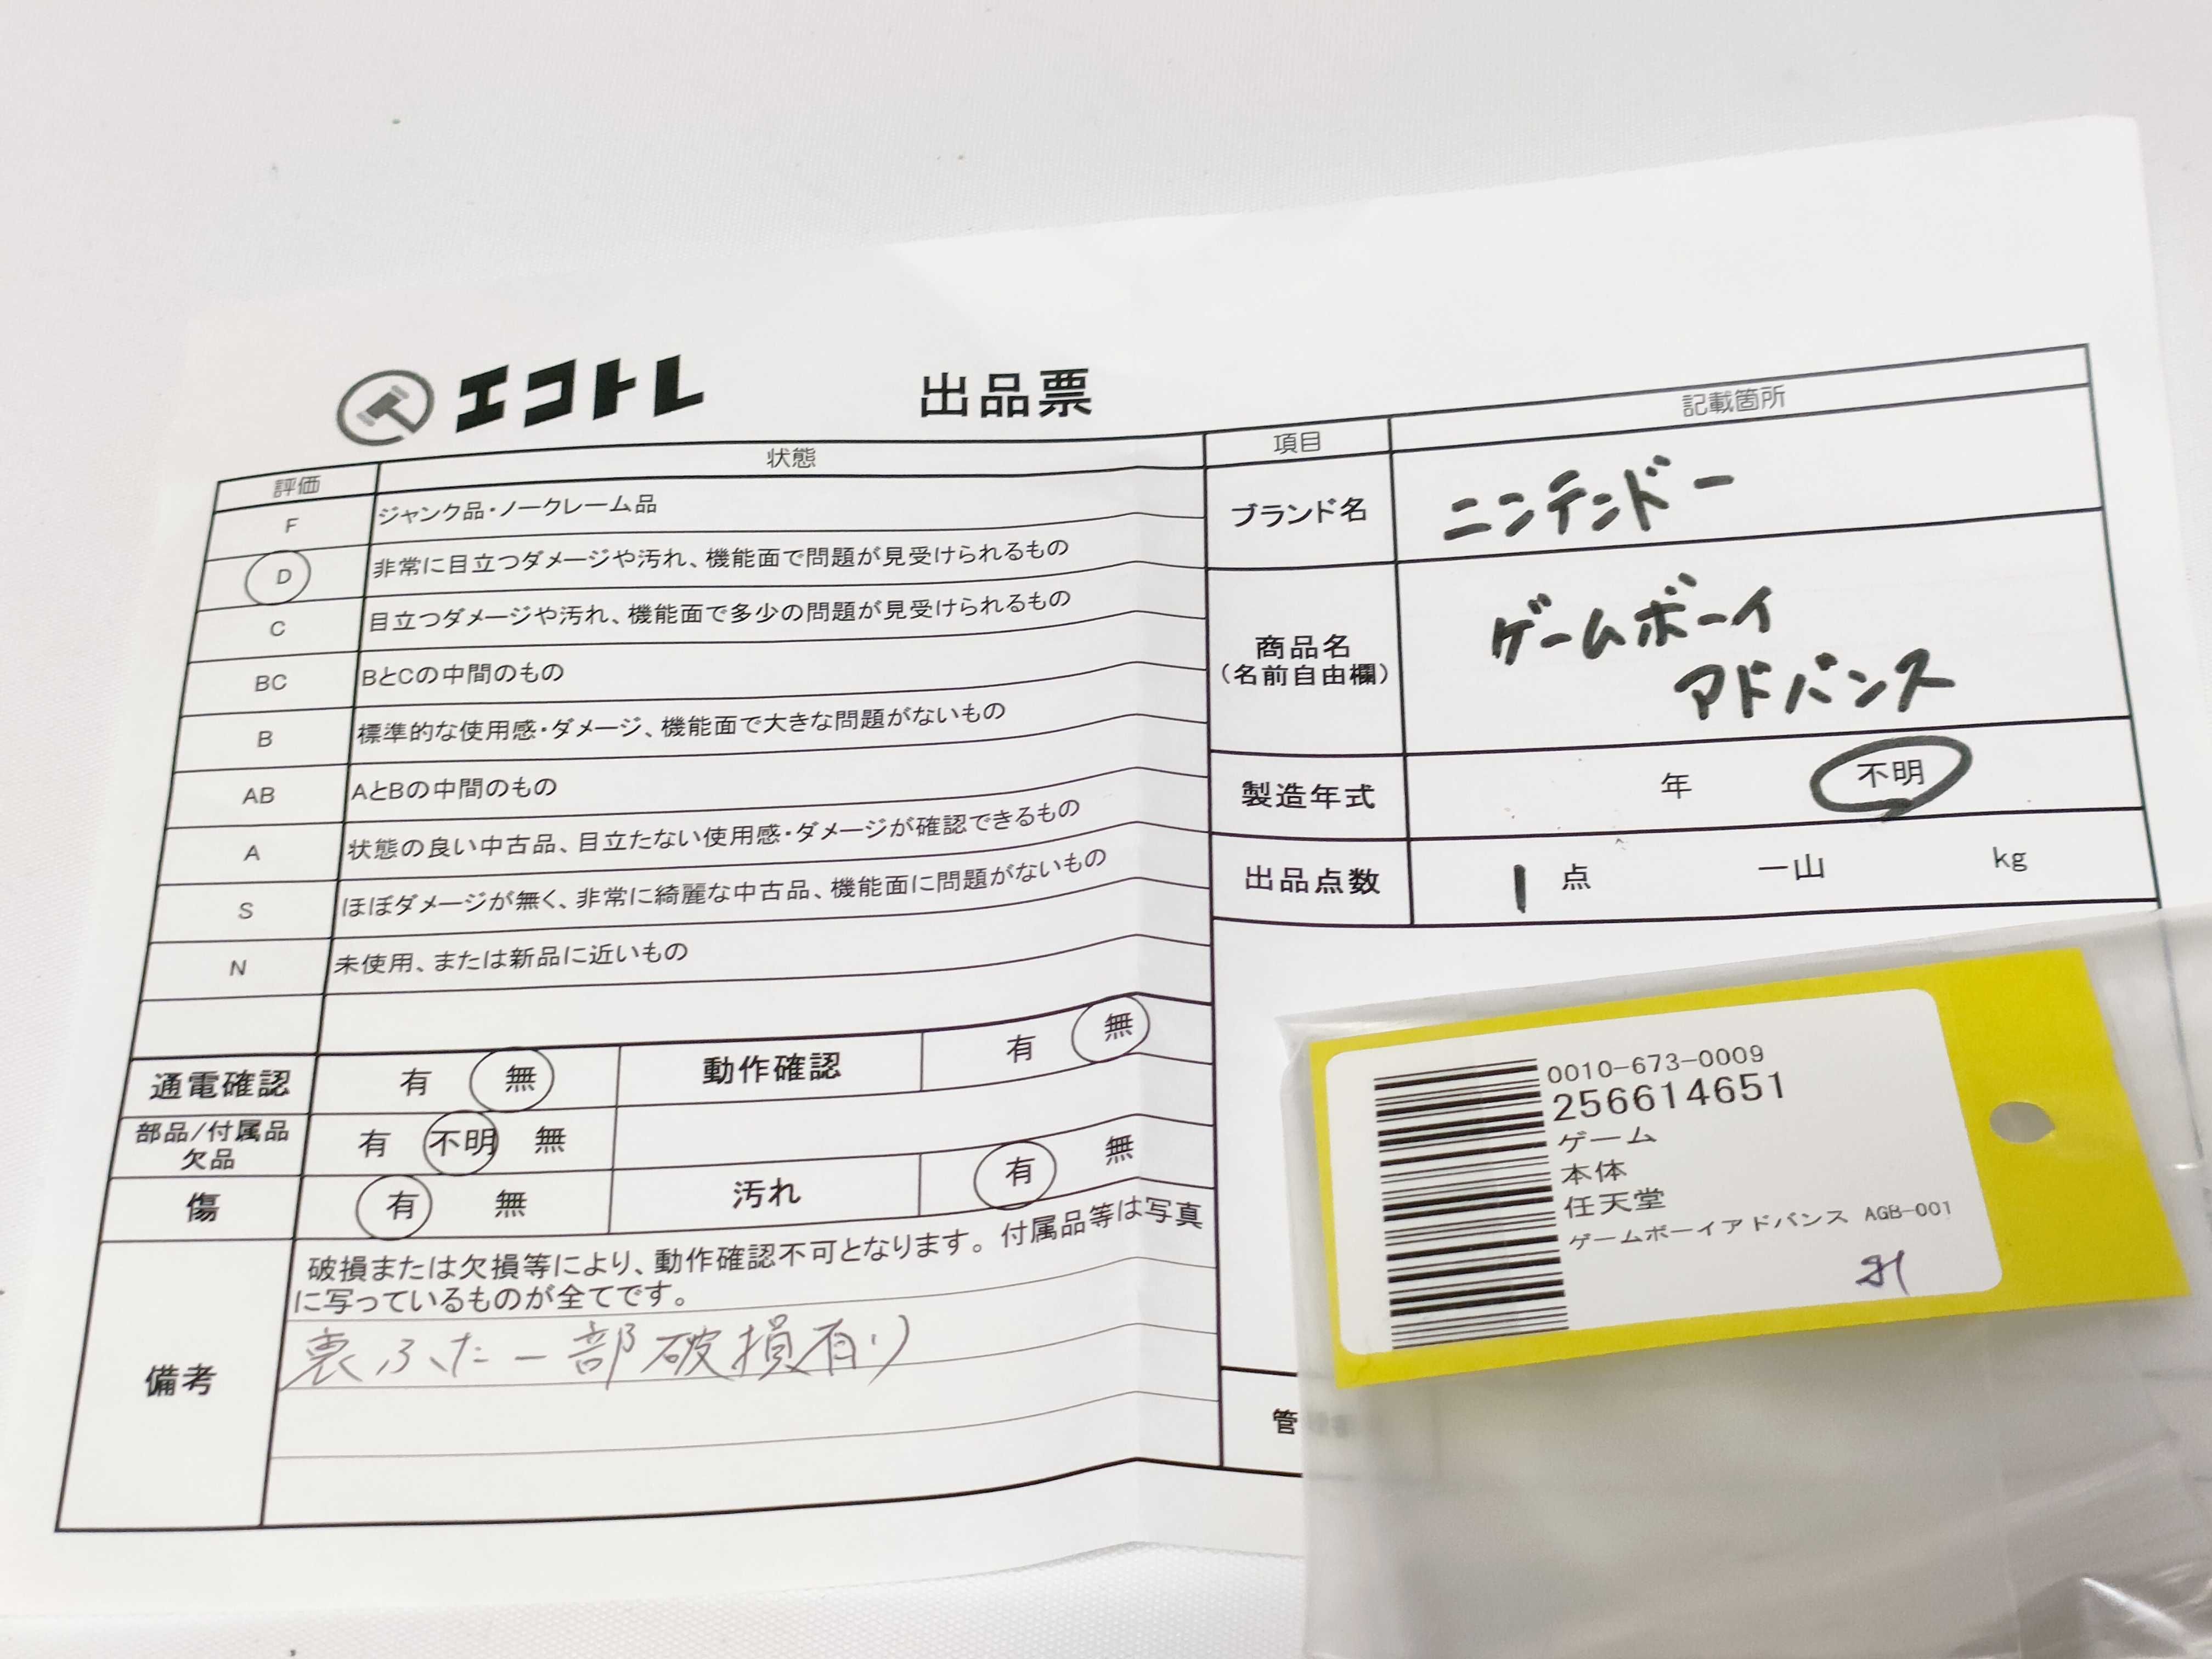 エコトレ 出品票
評価 状態
F ジャンク品・ノークレーム品
D 非常に目立つダメージや汚れ、機能面で問題が見受けられるもの
C 目立つダメージや汚れ、機能面で多少の問題が見受けられるもの
BC BとCの中間のもの
B 標準的な使用感・ダメージ、機能面で大きな問題がないもの
AB AとBの中間のもの
A 状態の良い中古品、目立たない使用感・ダメージが確認できるもの
S ほぼダメージが無く、非常に綺麗な中古品、機能面に問題がないもの
N 未使用、または新品に近いもの
通電確認 有 無 動作確認 有 無
部品/付属品
欠品 有 不明 無
傷 有 無 汚れ 有 無
備考
破損または欠損等により、動作確認不可となります。付属品等は写真
に写っているものが全てです。
裏ふた一部破損有り
項目 記載箇所
ブランド名 ニンテンドー
商品名
(名前自由欄)
ゲームボーイ
アドバンス
製造年式 年 不明
出品点数 1点 一山 kg
管
0010-673-0009
256614651
ゲーム
本体
任天堂
ゲームボーイアドバンス AGB-001